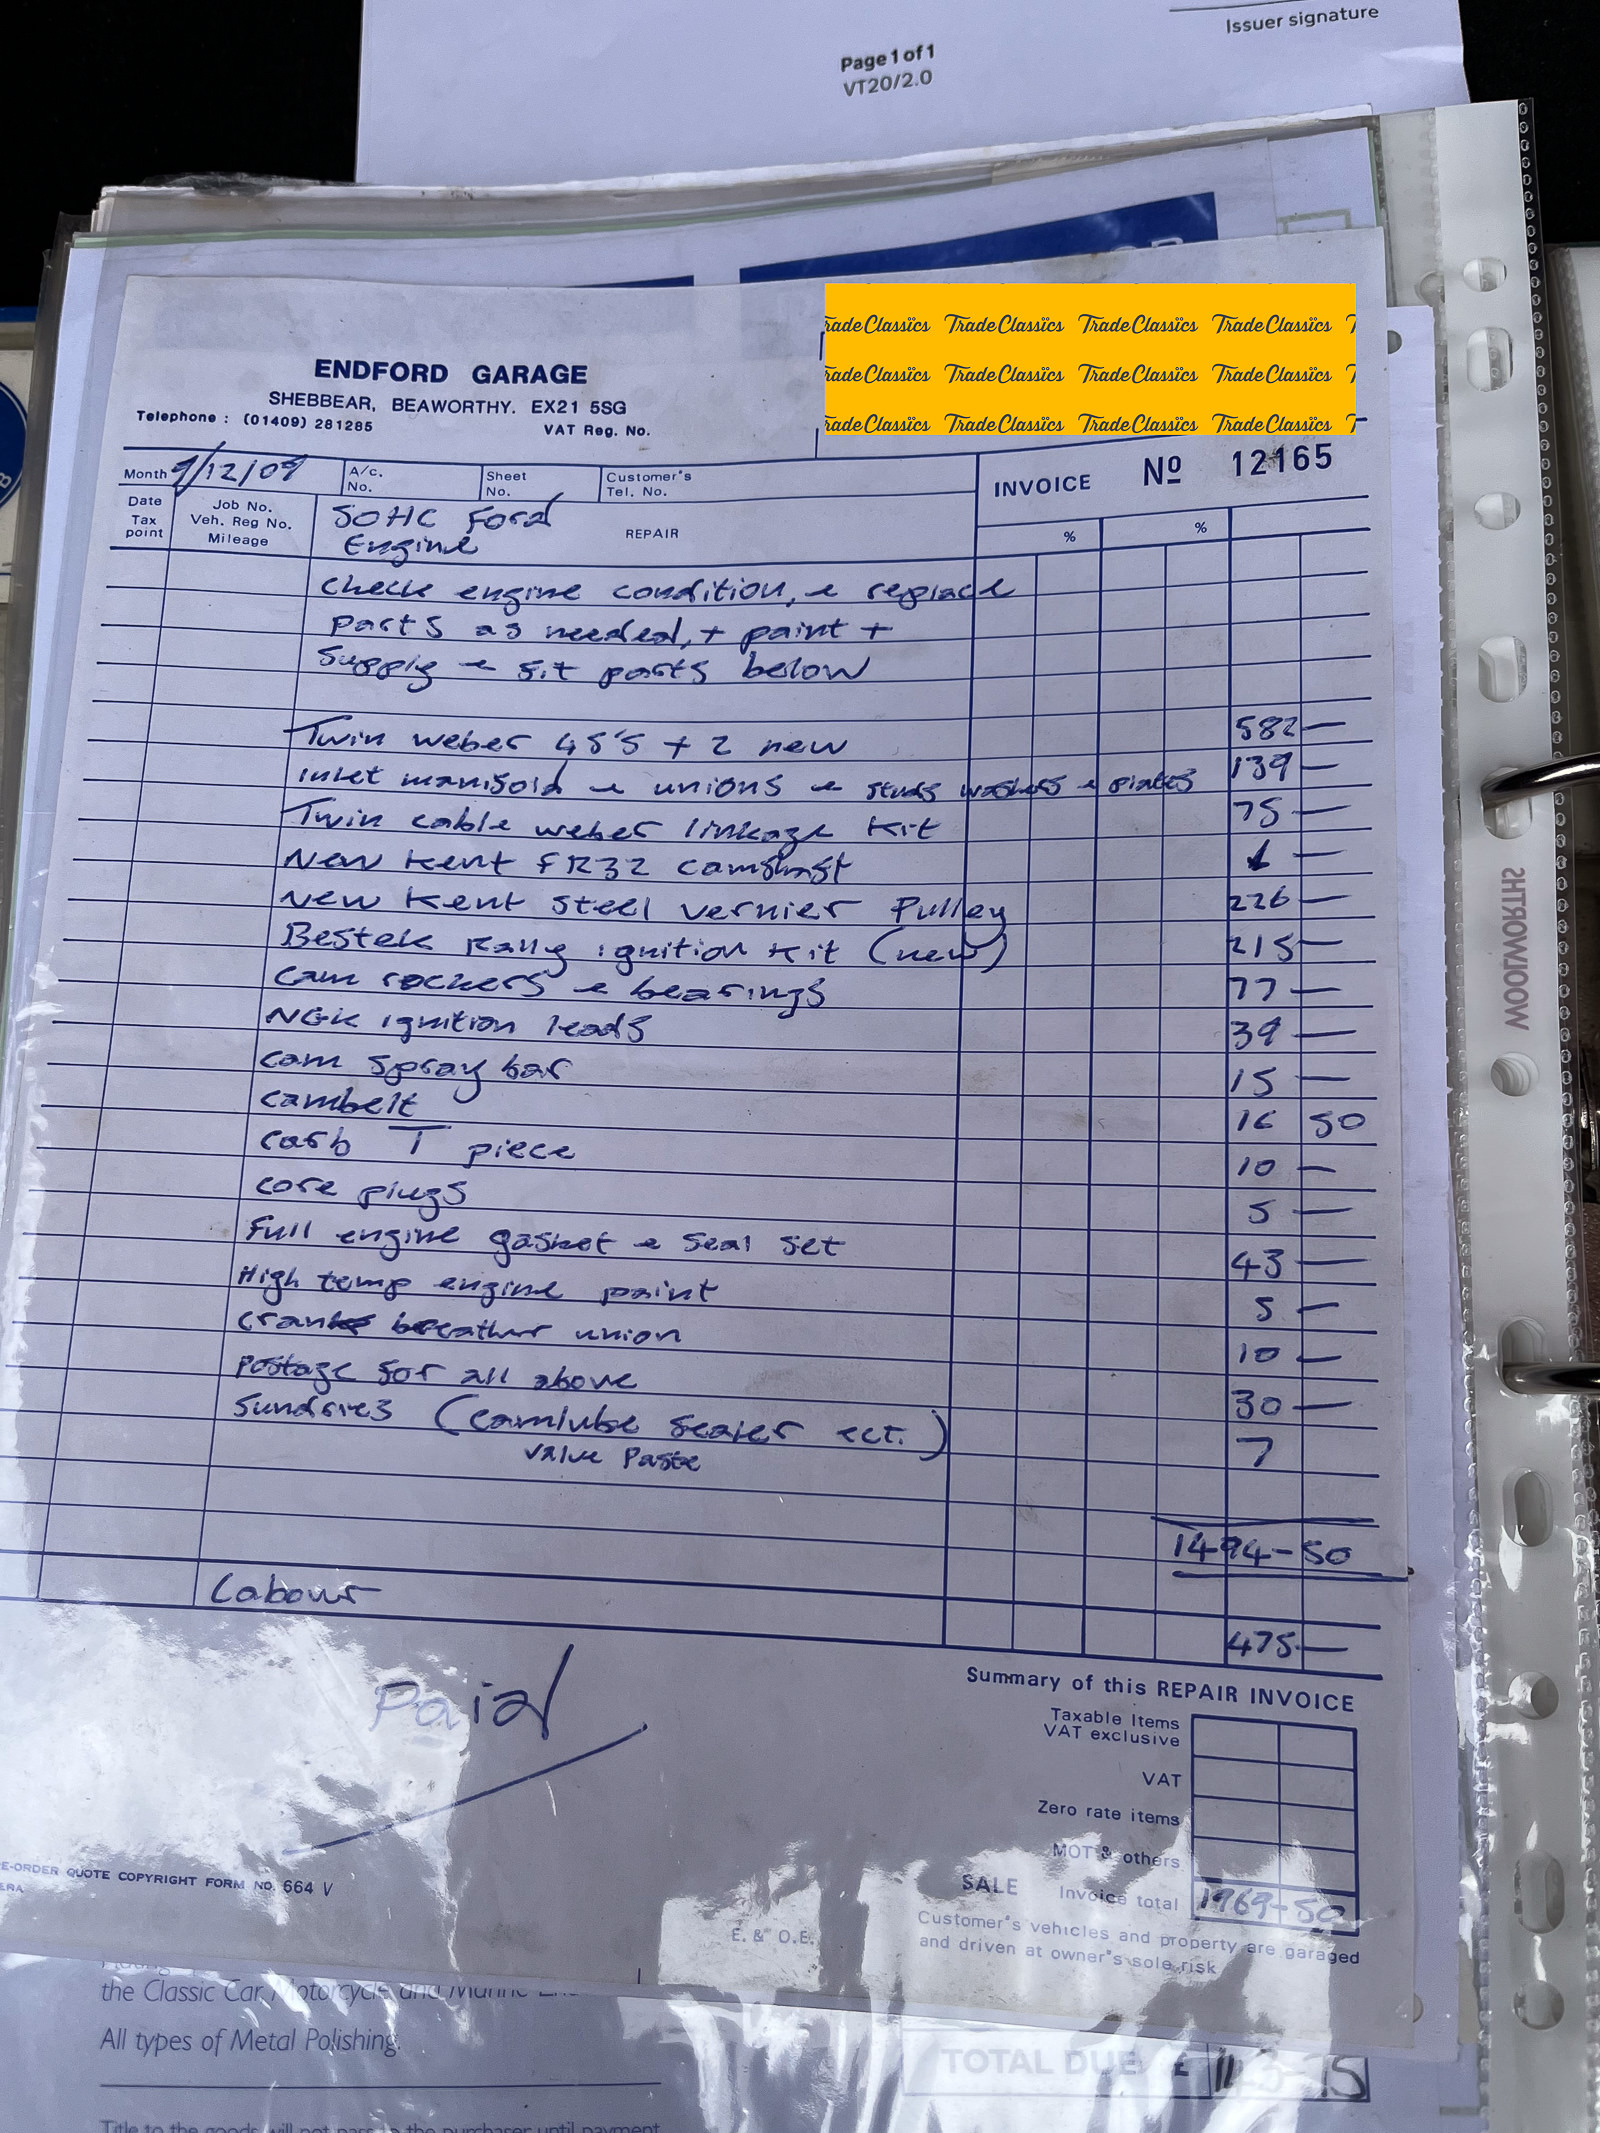 Issuer signature
Page 1 of 1
VT20/2.0
TradeClassics TradeClassics TradeClassics TradeClassics
TradeClassics TradeClassics TradeClassics TradeClassics
TradeClassics TradeClassics TradeClassics TradeClassics
ENDFORD GARAGE
SHEBBEAR, BEAWORTHY. EX21 5SG
Telephone : (01409) 281285 VAT Reg. No.
Month 9/12/09 A/c. No. Sheet No. Customer's Tel. No. INVOICE Nº 12165
Date Tax point Job No. Veh. Reg No. Mileage SOHC Ford Engine REPAIR % %
Check engine condition, & replace
parts as needed, + paint +
supply & fit parts below
Twin weber 45's + 2 new 582 —
inlet manifold & unions & studs washers & plates 139 —
Twin cable weber linkage kit 75 —
New Kent FR32 camshaft —
New Kent steel vernier Pulley 226 —
Bestek Rally ignition kit (new) 215 —
cam rockers & bearings 77 —
NGK ignition leads 39 —
cam spray bar 15 —
cambelt 16 50
carb T piece 10 —
core plugs 5 —
Full engine gasket & seal set 43 —
High temp engine paint 5 —
crank breather union 10 —
postage for all above 30 —
Sundries (camlube sealer ect.) 7
valve Paste
1494-50
Labour
475 —
Paid
Summary of this REPAIR INVOICE
Taxable Items
VAT exclusive
VAT
Zero rate items
MOT & others
SALE Invoice total 1969-50
E-ORDER QUOTE COPYRIGHT FORM NO. 664 V
ERA
E. & O.E.
Customer's vehicles and property are garaged
and driven at owner's sole risk
the Classic Car, Motorcycle and Marine
All types of Metal Polishing.
TOTAL DUE £
Title to the goods will not pass to the purchaser until payment
WOOLWORTHS